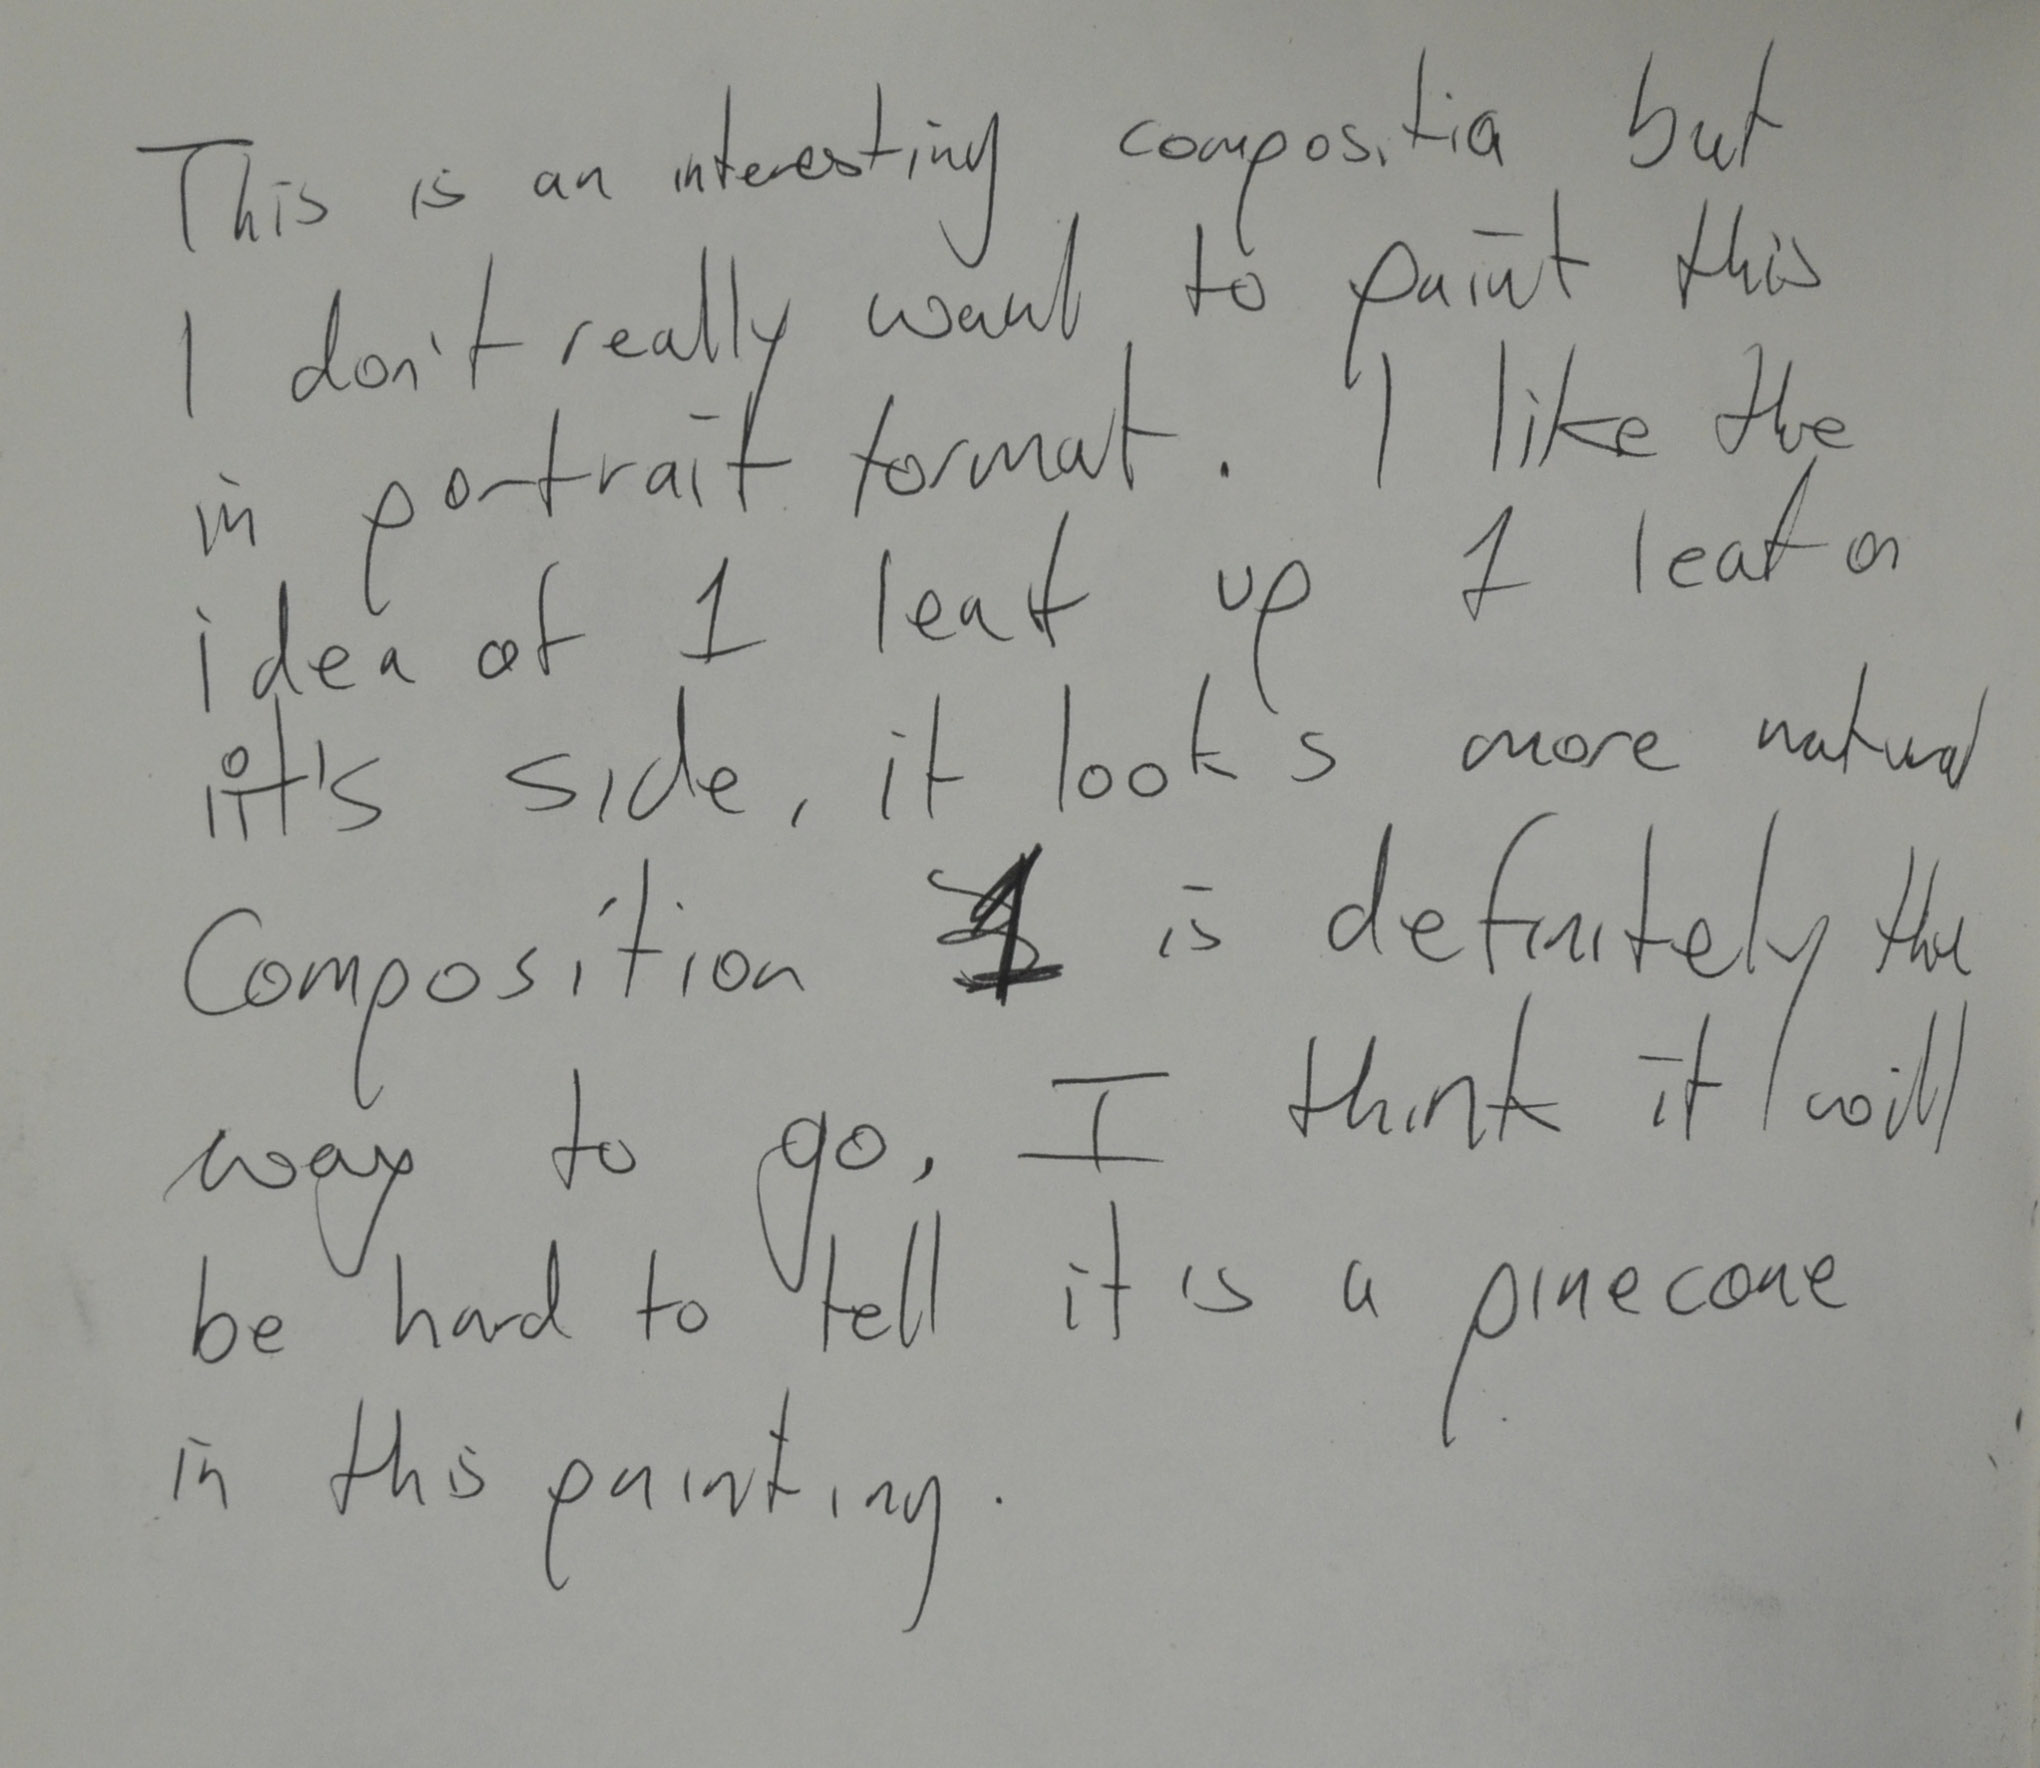 This is an interesting compositia but
I don't really want to paint this
in portrait format. I like the
idea of 1 leaf up 1 leaf on
it's side, it looks more natural
Composition 1 is definitely the
way to go, I think it will
be hard to tell it is a pinecone
in this painting.